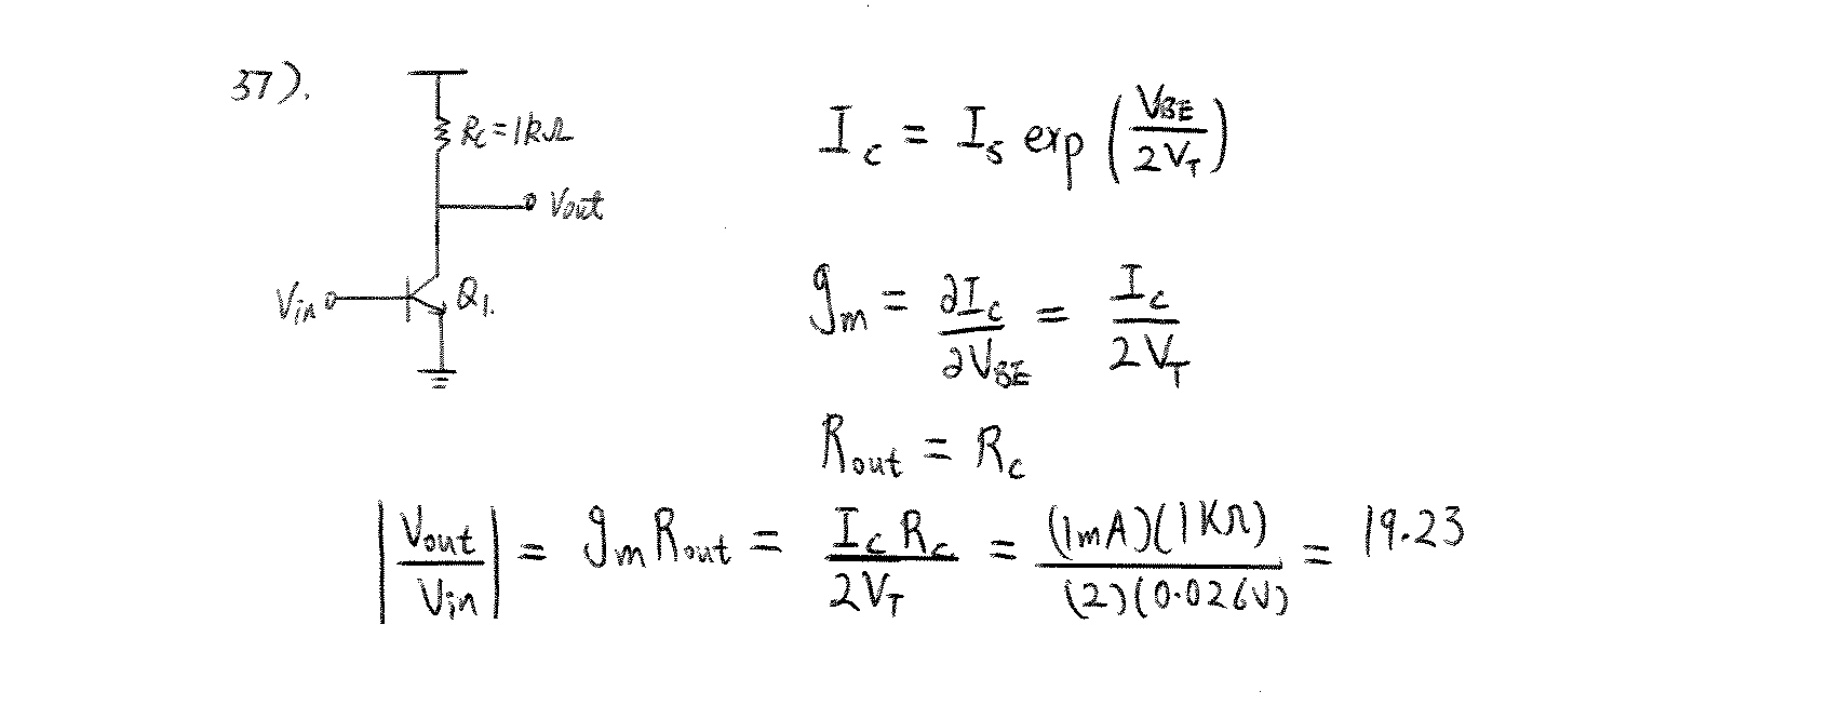 37).
R_C = 1kΩ
Vout
Vin
Q1.
I_C = I_S exp (V_BE / 2V_T)
g_m = ∂I_C / ∂V_BE = I_C / 2V_T
R_out = R_C
|V_out / V_in| = g_m R_out = I_C R_C / 2V_T = (1mA)(1KΩ) / (2)(0.026V) = 19.23